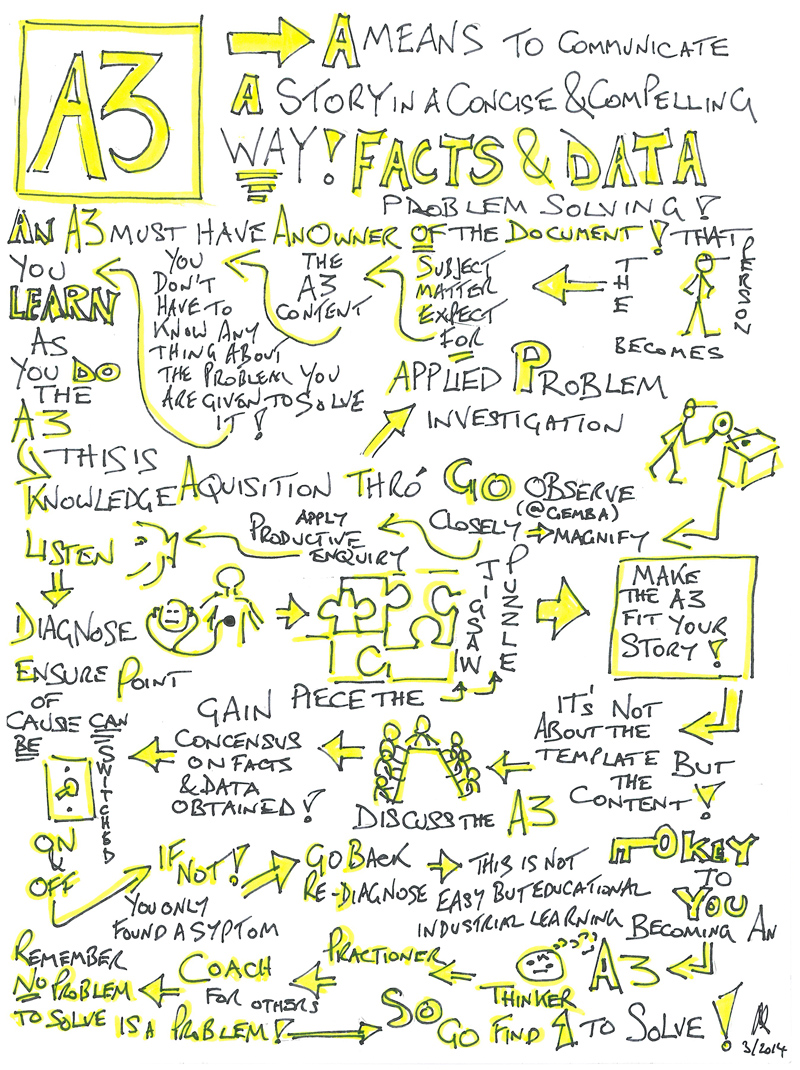 A3
A MEANS TO COMMUNICATE
A STORY IN A CONCISE & COMPELLING
WAY! FACTS & DATA
PROBLEM SOLVING!
AN A3 MUST HAVE AN OWNER OF THE DOCUMENT! THAT
PERSON
BECOMES
THE
SUBJECT
MATTER
EXPECT
FOR
THE
A3
CONTENT
YOU
DON'T
HAVE TO
KNOW ANY
THING ABOUT
THE PROBLEM YOU
ARE GIVEN TO SOLVE
IT!
YOU
LEARN
AS
YOU DO
THE
A3
THIS IS
KNOWLEDGE AQUISITION THRO'
APPLIED PROBLEM
INVESTIGATION
GO OBSERVE
(@GEMBA)
CLOSELY MAGNIFY
APPLY
PRODUCTIVE
ENQUIRY
LISTEN
DIAGNOSE
PIECE THE
JIGSAW
PUZZLE
MAKE
THE A3
FIT YOUR
STORY!
IT'S NOT
ABOUT THE
TEMPLATE BUT
THE
CONTENT!
DISCUSS THE A3
GAIN
CONCENSUS
ON FACTS
& DATA
OBTAINED!
ENSURE POINT
OF
CAUSE CAN
BE
SWITCHED
ON
&
OFF
IF
NOT!
YOU ONLY
FOUND A SYPTOM
GO BACK
RE-DIAGNOSE
THIS IS NOT
EASY BUT EDUCATIONAL
INDUSTRIAL LEARNING
KEY
TO
YOU
BECOMING AN
A3
THINKER
PRACTIONER
COACH
FOR OTHERS
REMEMBER
NO PROBLEM
TO SOLVE IS A PROBLEM!
SO
GO FIND 1 TO SOLVE!
3/2014